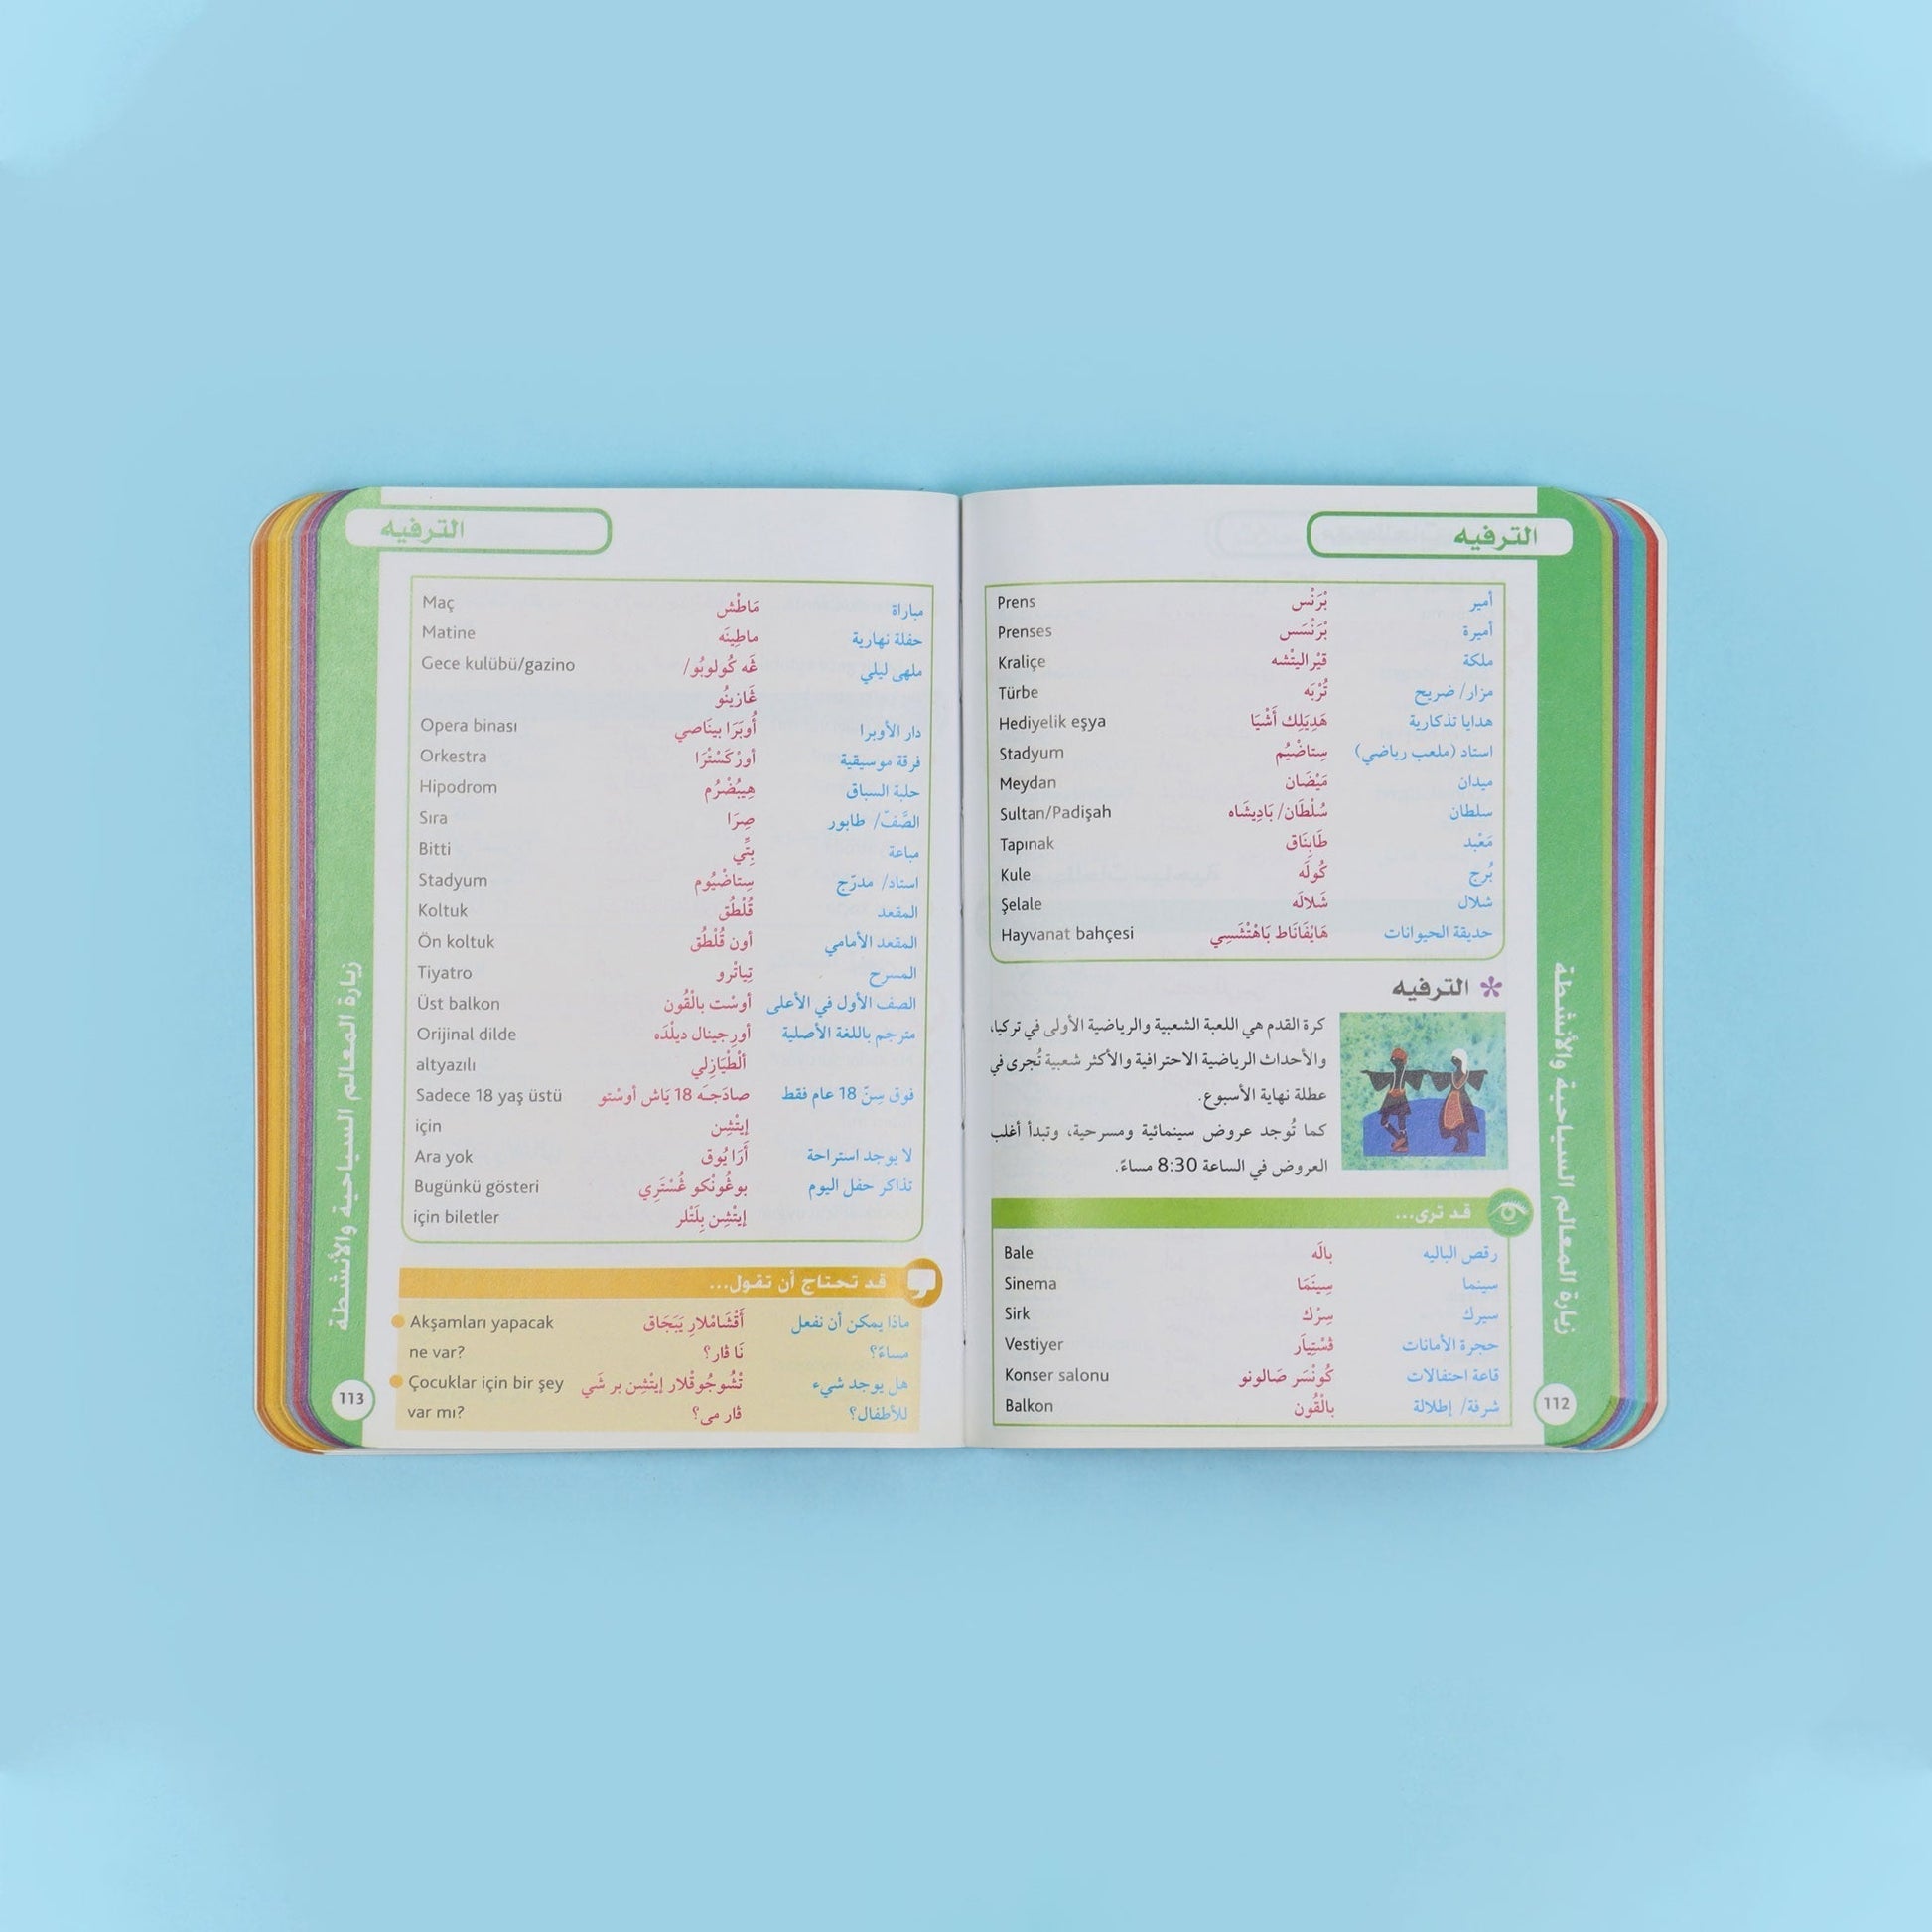 الترفيه
أمير بْرَنْس Prens
أميرة بْرَنْسَس Prenses
ملكة قيْراليتْشه Kraliçe
مزار/ ضريح تُرْبَه Türbe
هدايا تذكارية هَدِيَلِك أَشْيَا Hediyelik eşya
استاد (ملعب رياضي) سِتاضْيُم Stadyum
ميدان مَيْضَان Meydan
سلطان سُلْطَان/ بَادِيشَاه Sultan/Padişah
مَعْبد طَابِنَاق Tapınak
بُرج كُولَه Kule
شلال شَلالَه Şelale
حديقة الحيوانات هَايْفَانَاط بَاهْتْشَسِي Hayvanat bahçesi
* الترفيه
كرة القدم هي اللعبة الشعبية والرياضية الأولى في تركيا،
والأحداث الرياضية الاحترافية والأكثر شعبية تُجرى في
عطلة نهاية الأسبوع.
كما تُوجد عروض سينمائية ومسرحية، وتبدأ أغلب
العروض في الساعة 8:30 مساءً.
قد ترى...
رقص الباليه بالَه Bale
سينما سِينَمَا Sinema
سيرك سِرْك Sirk
حجرة الأمانات ڤسْتِيَاَر Vestiyer
قاعة احتفالات كُونْسَر صَالونو Konser salonu
شرفة/ إطلالة بالْقُون Balkon
زيارة المعالم السياحية والأنشطة
112
الترفيه
مباراة مَاطْش Maç
حفلة نهارية ماطِينَه Matine
ملهى ليلي غَه كُولوبُو/ Gece kulübü/gazino
غَازينُو
دار الأوبرا أُوبَرَا بينَاصي Opera binası
فرقة موسيقية أورْكَسْتْرَا Orkestra
حلبة السباق هِيبُضْرُم Hipodrom
الصَّفّ/ طابور صِرَا Sıra
مباعة بِتِّي Bitti
استاد/ مدرّج سِتاضْيُوم Stadyum
المقعد قُلْطُق Koltuk
المقعد الأمامي أون قُلْطُق Ön koltuk
المسرح تِياتْرو Tiyatro
الصف الأول في الأعلى أوسْت بالْقُون Üst balkon
مترجم باللغة الأصلية أورِجينال ديلْدَه Orijinal dilde
اَلْطْيَازِلي altyazılı
فوق سِنّ 18 عام فقط صادَجـَه 18 يَاش أوسْتو Sadece 18 yaş üstü
إيتْشِن için
لا يوجد استراحة أَرَا يُوق Ara yok
تذاكر حفل اليوم بوغُونْكو غُسْتَرِي Bugünkü gösteri
إيتْشِن بِلَتْلر için biletler
قد تحتاج أن تقول...
ماذا يمكن أن نفعل أَقْشَامْلارِ يَبَجَاق Akşamları yapacak
مساءً؟ نَا ڤار؟ ne var?
هل يوجد شيء تْشُوجُوقْلار إيتْشِن بر شَي Çocuklar için bir şey
للأطفال؟ ڤار مى؟ var mı?
زيارة المعالم السياحية والأنشطة
113